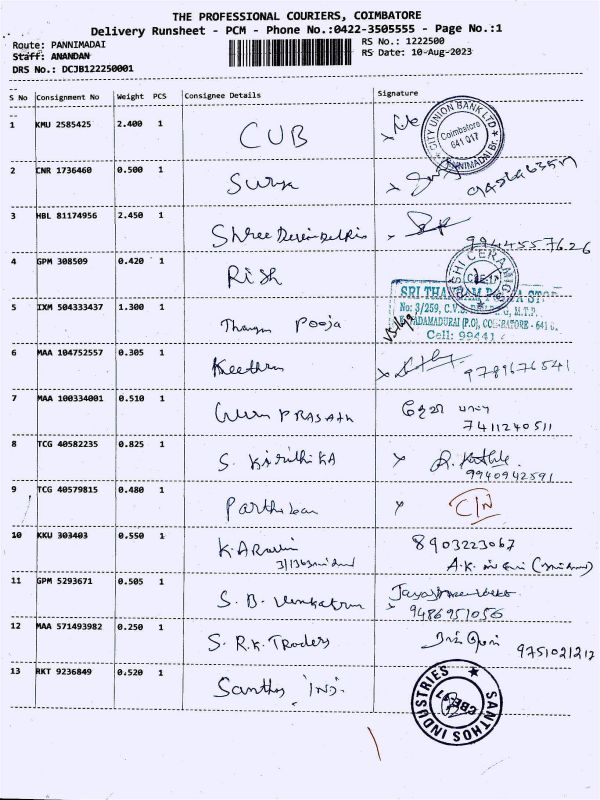 THE PROFESSIONAL COURIERS, COIMBATORE
Delivery Runsheet - PCM - Phone No.:0422-3505555 - Page No.:1
Route: PANNIMADAI RS No.: 1222500
Staff: ANANDAN RS Date: 10-Aug-2023
DRS No.: DCJB122250001
S No Consignment No Weight PCS Consignee Details Signature
1 KMU 2585425 2.400 1 CUB
CITY UNION BANK LTD
Coimbatore
641 017
PANNIMADAI Br.
2 CNR 1736460 0.500 1 Surya
3 HBL 81174956 2.450 1 Shree
9944557626
4 GPM 308509 0.420 1 Rish
RISHI CERAMIC
CBE-17
SRI THANGAM POOJA STORE
No: 3/259, C.V.S.
(P.O), COIMBATORE - 641 0
Cell: 99441
5 IXM 504333437 1.300 1 Thangam Pooja
6 MAA 104752557 0.305 1 Keerthana
9789676541
7 MAA 100334001 0.510 1 Guru PRASATH
7411240511
8 TCG 40582235 0.825 1 S. KiruthiKA
9940942591
9 TCG 40579815 0.480 1 Parthiban
10 KKU 303403 0.550 1 8903223067
A.K.
11 GPM 5293671 0.505 1 S. B. Venkatrm
9486951056
12 MAA 571493982 0.250 1 S. R.K. Traders
9751021212
13 RKT 9236849 0.520 1 Santhos Ind.
SANTHOS INDUSTRIES
CBE-17